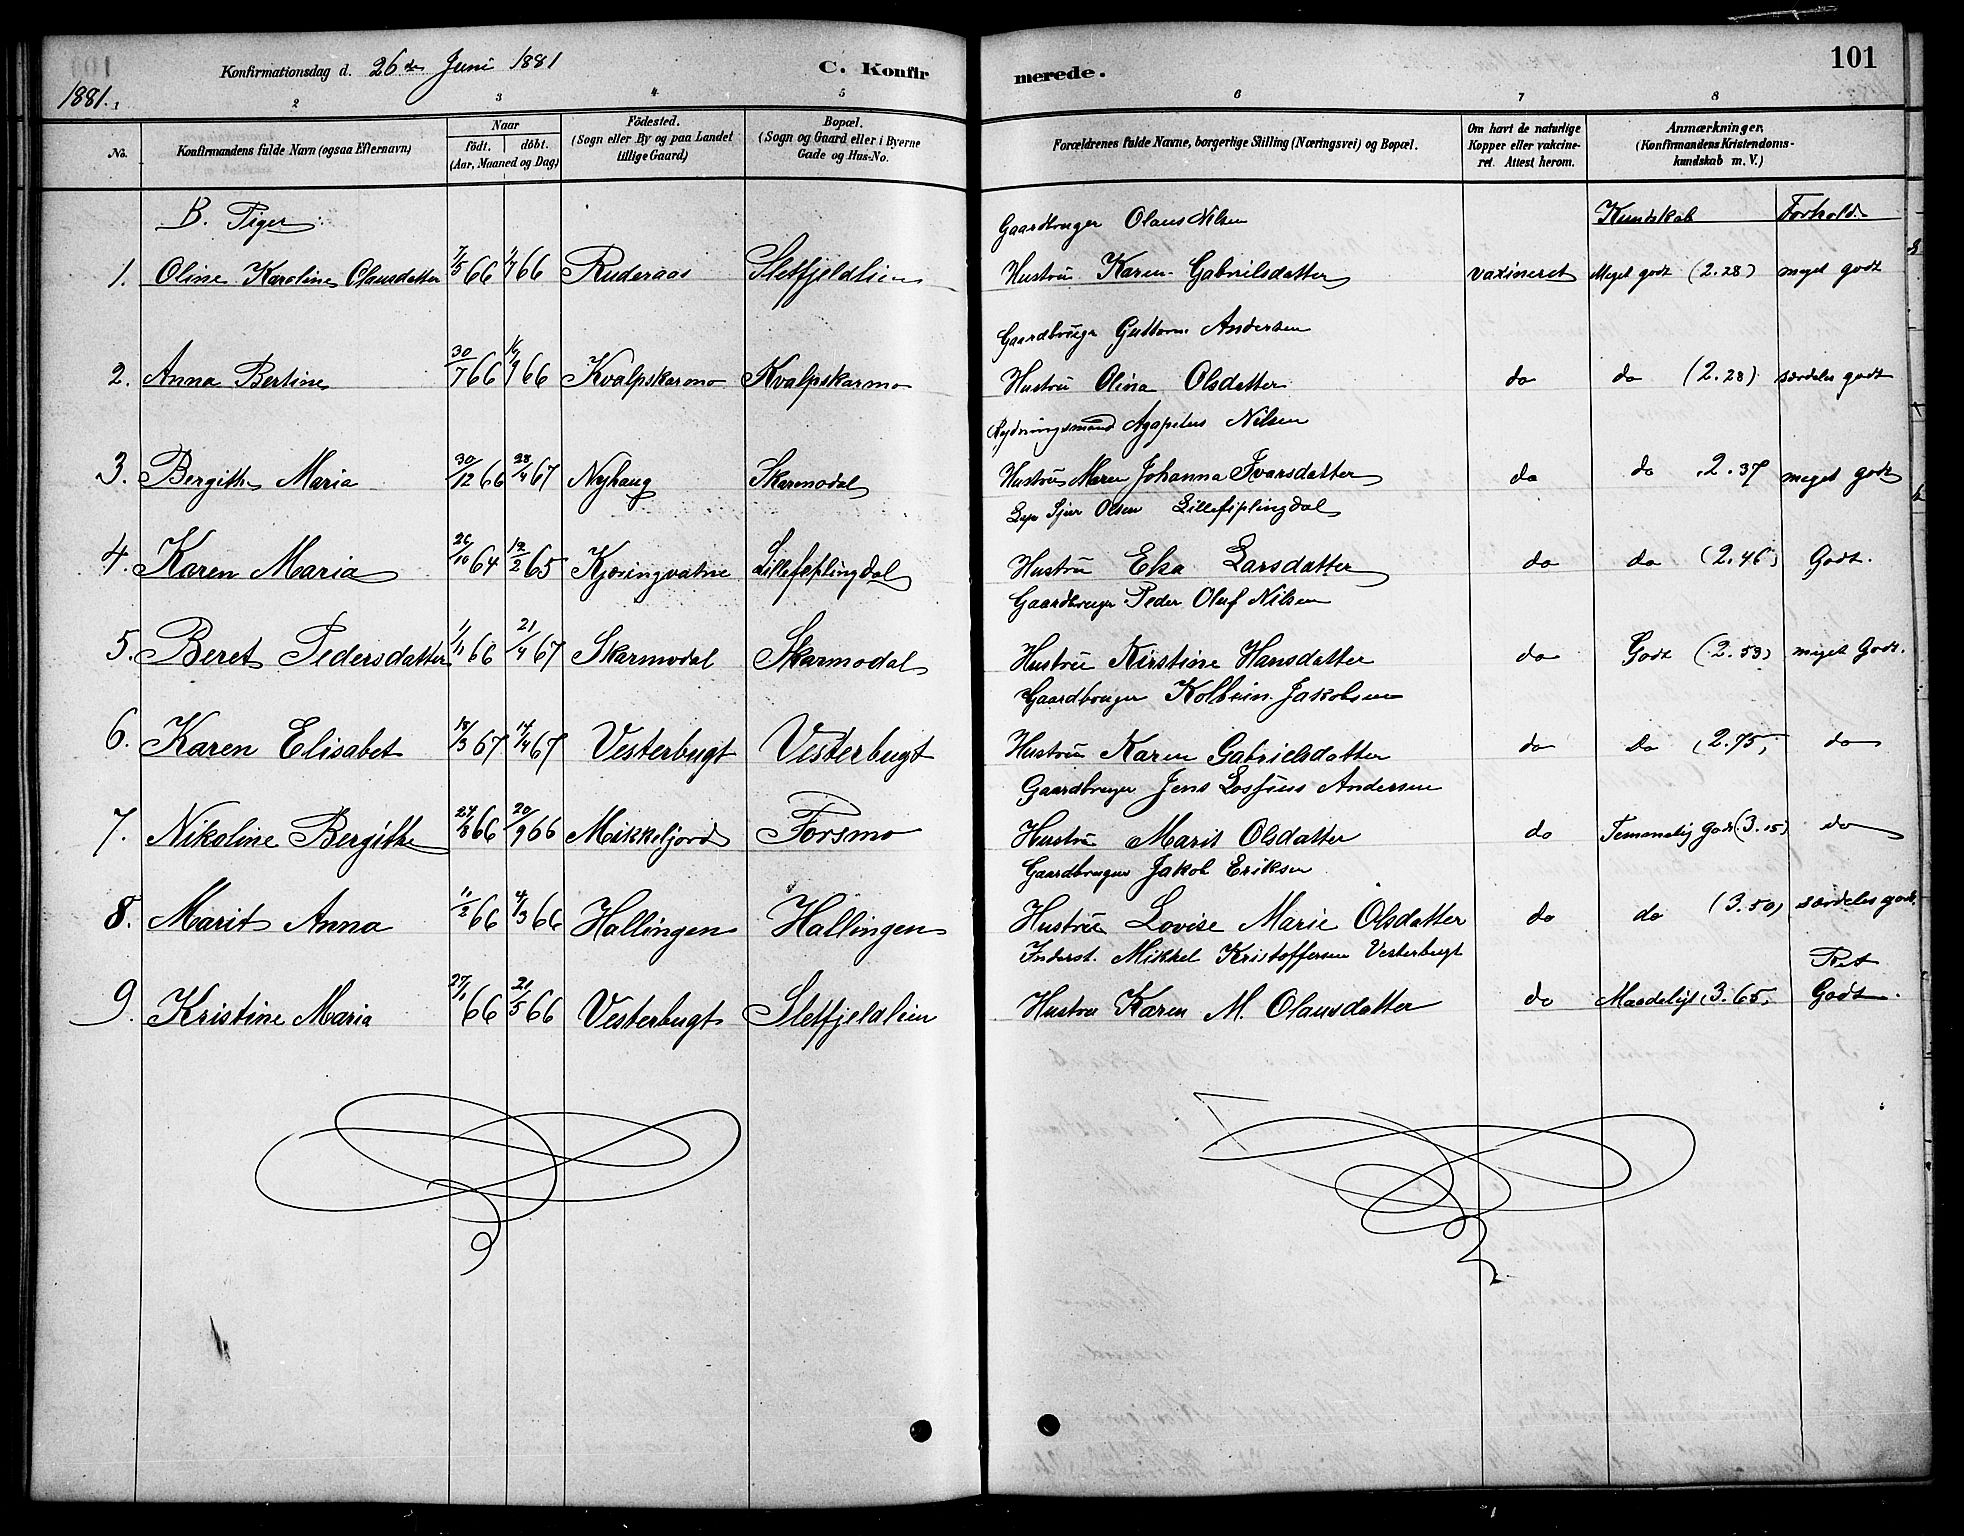 Konfirmationsdag d. 26de Juni 1881 C. Konfirmerede. 101
1881.
2 3 4 5 6 7 8
No. Konfirmandens fulde Navn (ogsaa Efternavn) Naar født. døbt. (Aar, Maaned og Dag) Fødested. (Sogn eller By og paa Landet tillige Gaard) Bopæl. (Sogn og Gaard eller i Byerne Gade og Hus-No. Forældrenes fulde Navne, borgerlige Stilling (Næringsvei) og Bopæl. Om havt de naturlige Kopper eller vakcineret. Attest herom. Anmærkninger. (Konfirmandens Kristendomskundskab m. V.)
B. Piger: Kundskab Forhold.
Gaardbruger Olaus Nilsen
1. Oline Karoline Olausdatter 7/5 66 1/7 66 Ruderaas Sletfjeldlien Hustru Karen Gabrielsdatter vaxineret Meget godt (2.28) meget godt
Gaardbruger Guttorm Andersen
2. Anna Bertine 30/7 66 16/9 66 Kvalpskarmo Kvalpskarmo Hustru Olina Olsdatter do do (2.28) særdeles godt
Rydningsmand Agapetus Nilsen
3. Bergithe Maria 30/12 66 28/4 67 Nyhaug Skarmodal Hustru Maren Johanna Ivarsdatter do do 2.37 meget godt
Sjur Olsen Lillefiplingdal
4. Karen Maria 26/10 64 12/2 65 Kjæringvatne Lillefiplingdal Hustru Elsa Larsdatter do do (2.46) Godt.
Gaardbruger Peder Oluf Nilsen
5. Beret Pedersdatter 1/11 66 21/4 67 Skarmodal Skarmodal Hustru Kirstine Hansdatter do Godt (2.53) meget Godt.
Gaardbruger Kolbein Jakobsen
6. Karen Elisabet 18/3 67 14/4 67 Vesterbugt Vesterbugt Hustru Karen Gabrielsdatter do Do (2.75) do
Gaardbruger Jens Andersen
7. Nikoline Bergithe 24/8 66 20/9 66 Mikkeljord Forsmo Hustru Marit Olsdatter do Temmelig godt (3.15) do
Gaardbruger Jakob Eriksen
8. Marit Anna 11/2 66 4/3 66 Hallingen Hallingen Hustru Lovise Marie Olsdatter do do (3.50) særdeles godt.
Inderst. Mikkel Kristoffersen Vesterbugt
9. Kristine Maria 27/1 66 21/5 66 Vesterbugt Sletfjeldlien Hustru Karen M. Olausdatter do Maadeligt 3.65. Ret Godt.